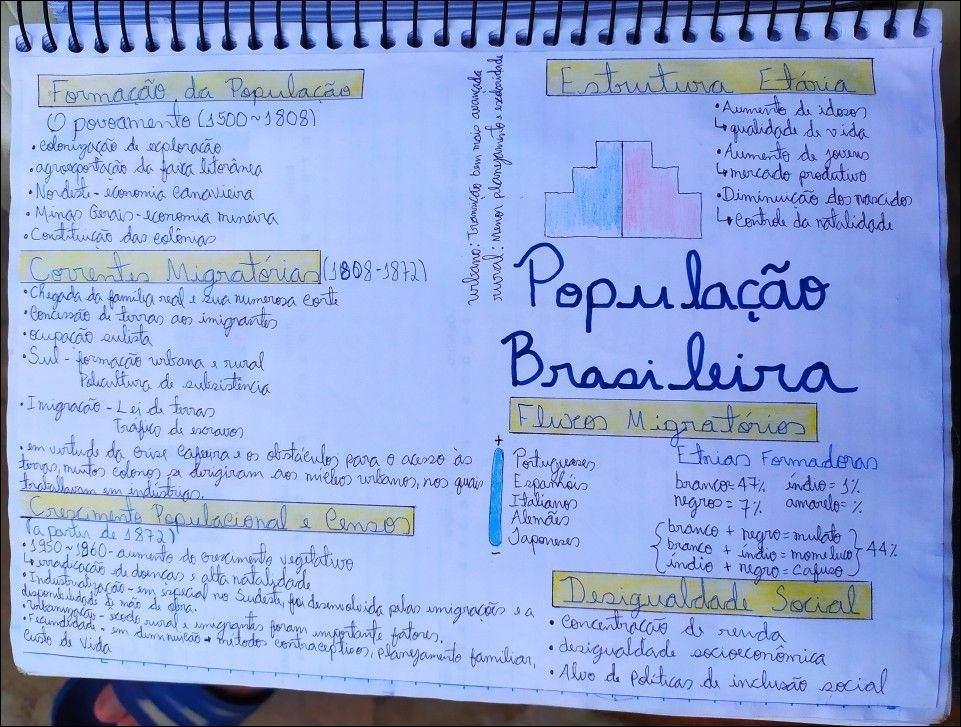 Formação da População
O povoamento (1500~1808)
• colonização de exploração
• agroexportação da faixa litorânea
• Nordeste - economia canavieira
• Minas Gerais - economia mineira
• Constituição das colônias
Correntes Migratórias (1808-1872)
• Chegada da família real e sua numerosa corte
• Concessão de terras aos imigrantes
• ocupação sulista
• Sul - formação urbana e rural
Policultura de subsistência
• Imigração - Lei de terras
Tráfico de escravos
• em virtude da crise cafeeira e os obstáculos para o acesso às
terras, muitos colonos se dirigiram aos núcleos urbanos, nos quais
trabalhavam em indústrias.
Crescimento Populacional e Censos
(a partir de 1872)
• 1950~1960 - aumento do crescimento vegetativo
↳ erradicação de doenças e alta natalidade
• Industrialização - em especial no Sudeste, foi desenvolvida pelas imigrações e a
disponibilidade de mão de obra.
• Urbanização - êxodo rural e imigrantes foram importante fatores.
• Fecundidade - em diminuição → métodos contraceptivos, planejamento familiar,
custo de vida
urbano: Transição bem mais avançada
rural: Menor planejamento e escolaridade
Estrutura Etária
• Aumento de idosos
↳ qualidade de vida
• Aumento de jovens
↳ mercado produtivo
• Diminuição dos nascidos
↳ controle da natalidade
População
Brasileira
Fluxos Migratórios
+
Portugueses
Espanhóis
Italianos
Alemães
Japoneses
-
Etnias Formadoras
branco = 47% índio = 1%
negros = 7% amarelo = %
branco + negro = mulato
branco + índio = mameluco
índio + negro = cafuso
44%
Desigualdade Social
• concentração de renda
• desigualdade socioeconômica
• Alvo de políticas de inclusão social